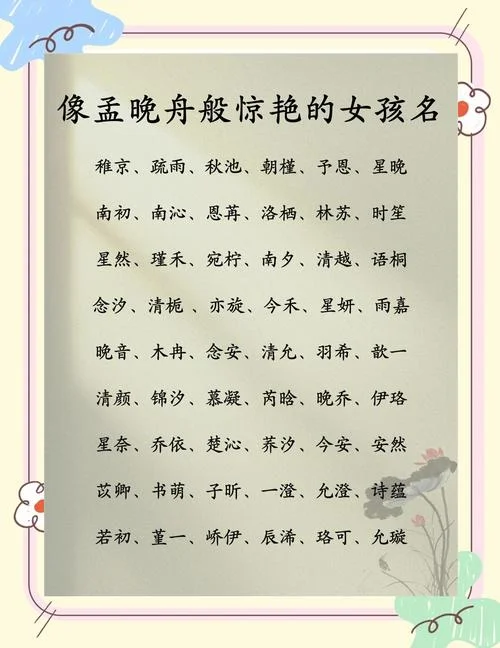 像孟晚舟般惊艳的女孩名
稚京、疏雨、秋池、朝槿、予恩、星晚
南初、南沁、恩苒、洛栖、林苏、时笙
星然、瑾禾、宛柠、南夕、清越、语桐
念汐、清栀、亦旋、今禾、星妍、雨嘉
晚音、木冉、念安、清允、羽希、歆一
清颜、锦汐、慕凝、芮晗、晚乔、伊珞
星奈、乔依、楚沁、荞汐、今安、安然
苡卿、书萌、子昕、一澄、允澄、诗蕴
若初、堇一、峤伊、辰浠、珞可、允璇